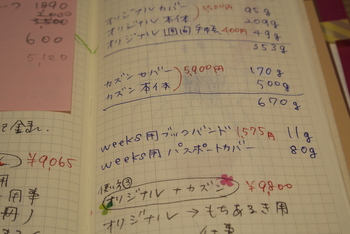 1890
600
5,120
¥9,065
オリジナル カバー 95g
オリジナル 本体 209g
オリジナル 週間手帳 400円 49g
353g
カズン カバー 5,900円 170g
カズン 本体 500g
670g
weeks用ブックバンド 1,575円 11g
weeks用 パスポートカバー 80g
使い方③
オリジナル + カズン ¥9,800
オリジナル → もちあるき用
仕事